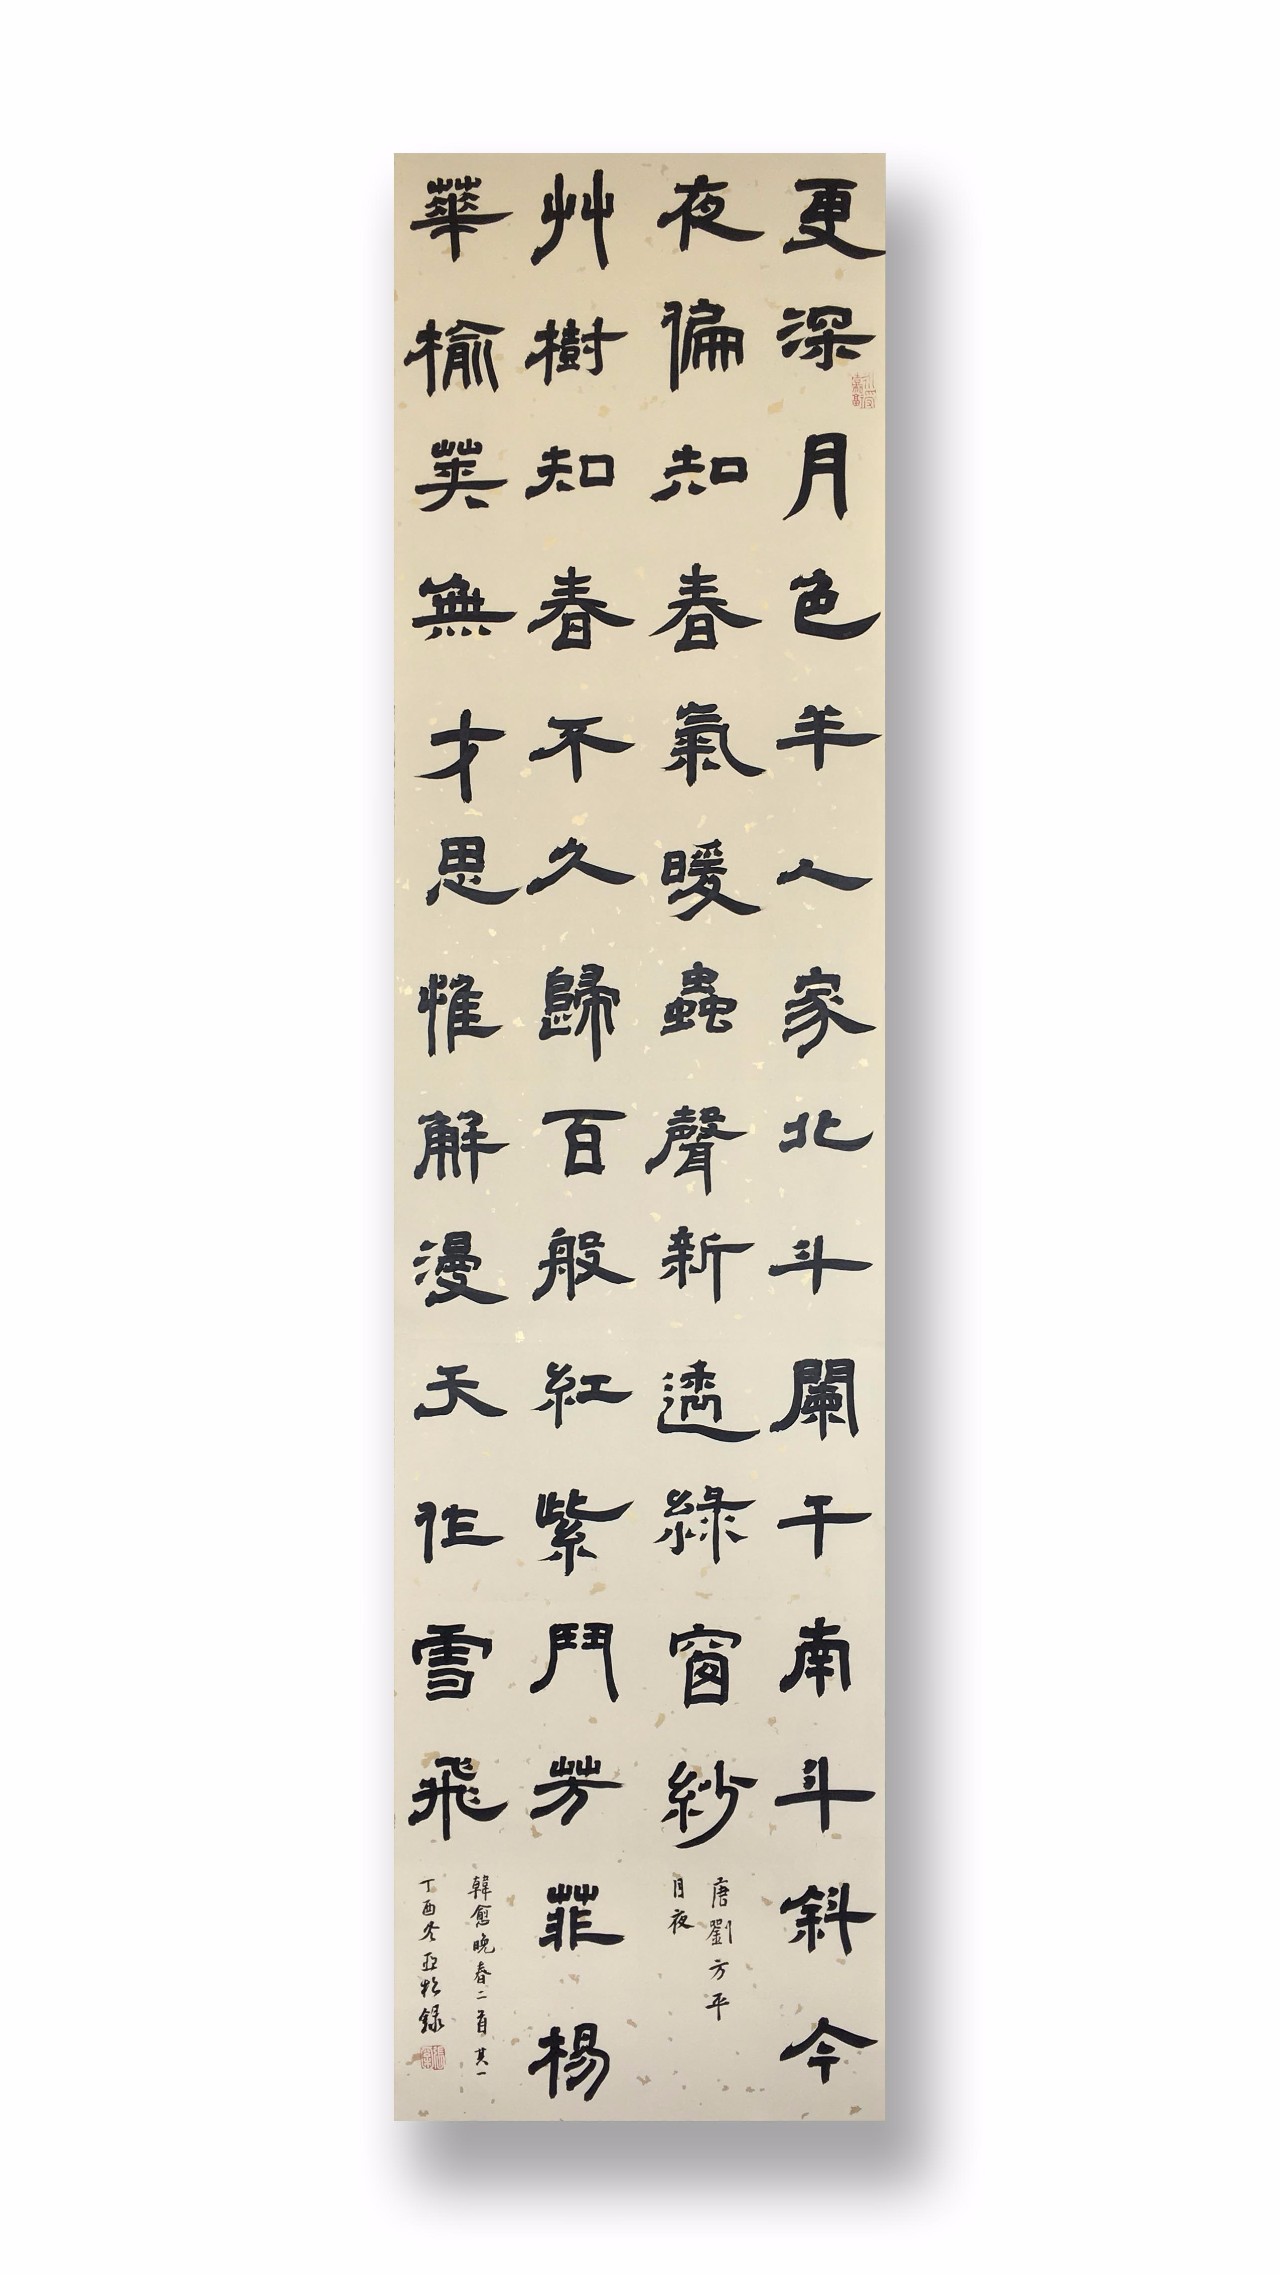 更深月色半人家北斗闌干南斗斜今
夜偏知春氣暖蟲聲新透綠窗紗
唐劉方平
月夜
艸樹知春不久歸百般紅紫鬥芳菲楊
華榆莢無才思惟解漫天作雪飛
韓愈晚春二首其一
丁酉冬亞松錄